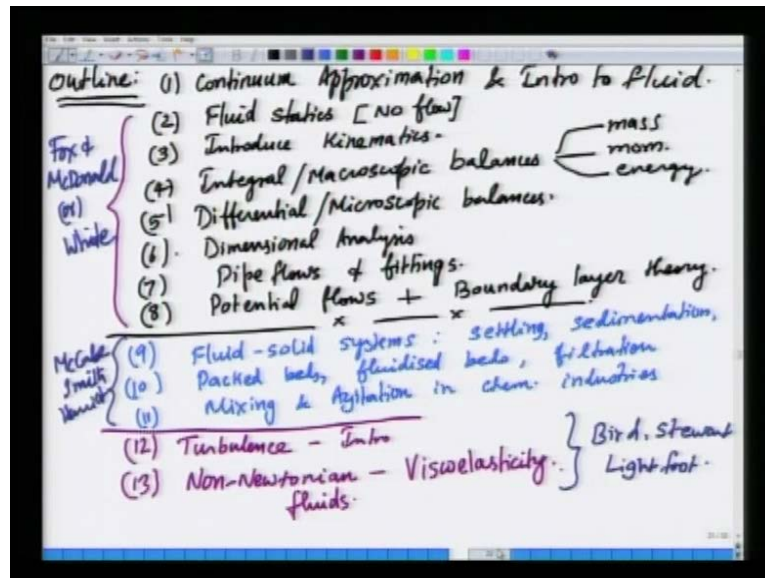 Outline: (1) Continuum Approximation & Intro to fluid.
(2) Fluid statics [No flow]
(3) Introduce Kinematics.
(4) Integral/Macroscopic balances
mass
mom.
energy.
(5) Differential/Microscopic balances.
(6). Dimensional Analysis
(7) Pipe flows & fittings.
(8) Potential flows + Boundary layer theory.
Fox &
McDonald
(or)
White
x x
(9) Fluid-solid systems: settling, sedimentation,
(10) Packed beds, fluidised beds, filtration
(11) Mixing & Agitation in chem. industries
McCabe
Smith
Harriot
(12) Turbulence - Intro
(13) Non-Newtonian - Viscoelasticity.
fluids.
Bird, Stewart
Lightfoot.